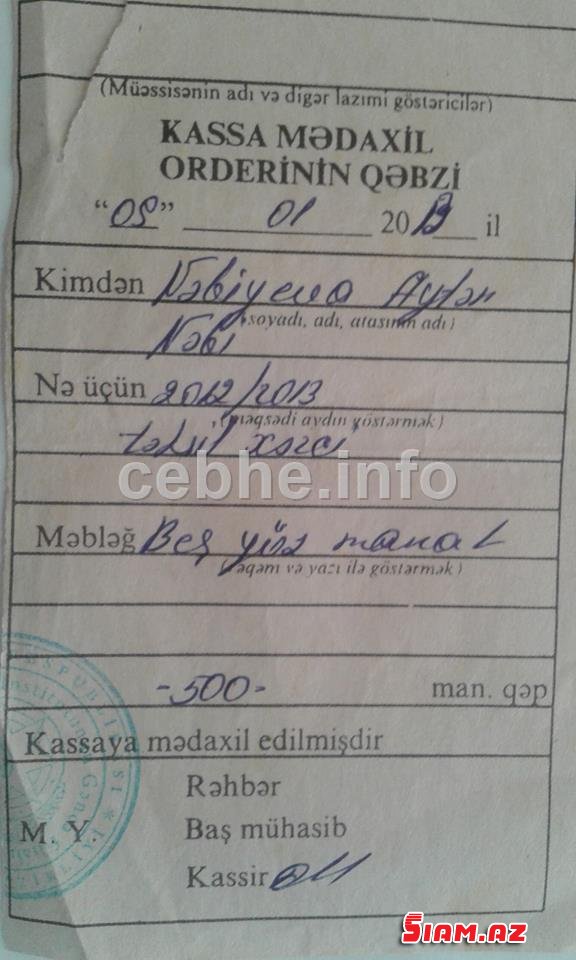 (Müəssisənin adı və digər lazımi göstəricilər)
KASSA MƏDAXİL
ORDERİNİN QƏBZİ
"09" 01 2013 il
Kimdən Nəbiyeva Aytən
(soyadı, adı, atasının adı)
Nəbi
Nə üçün 2012/2013
(məqsədi aydın göstərmək)
təhsil xərci
cebhe.info
Məbləğ Beş yüz manat
(rəqəm və yazı ilə göstərmək)
-500- man. qəp
Kassaya mədaxil edilmişdir
Rəhbər
M. Y. Baş mühasib
Kassir
SİAM.AZ